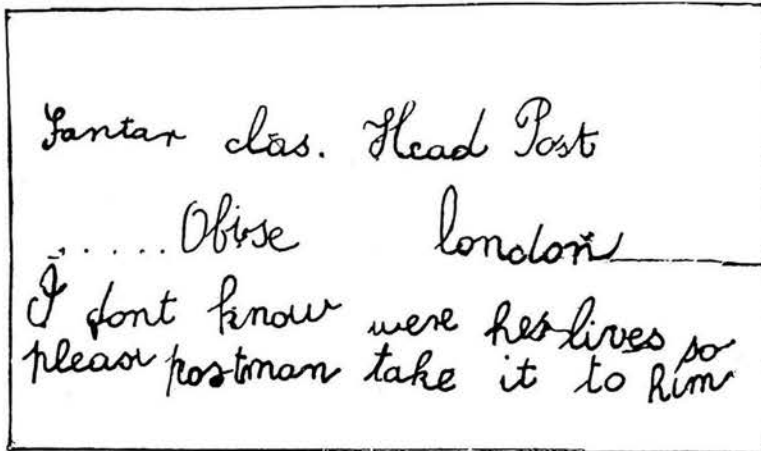 Santar clas. Head Post
...... Obise london
I dont know were he lives so
pleas postman take it to him